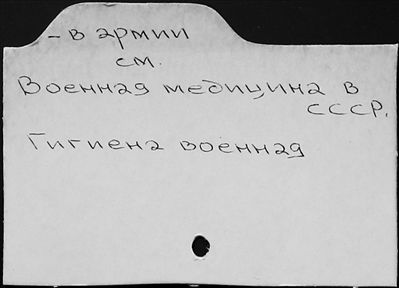 - в армии
см.
Военная медицина в
СССР.
Гигиена военная